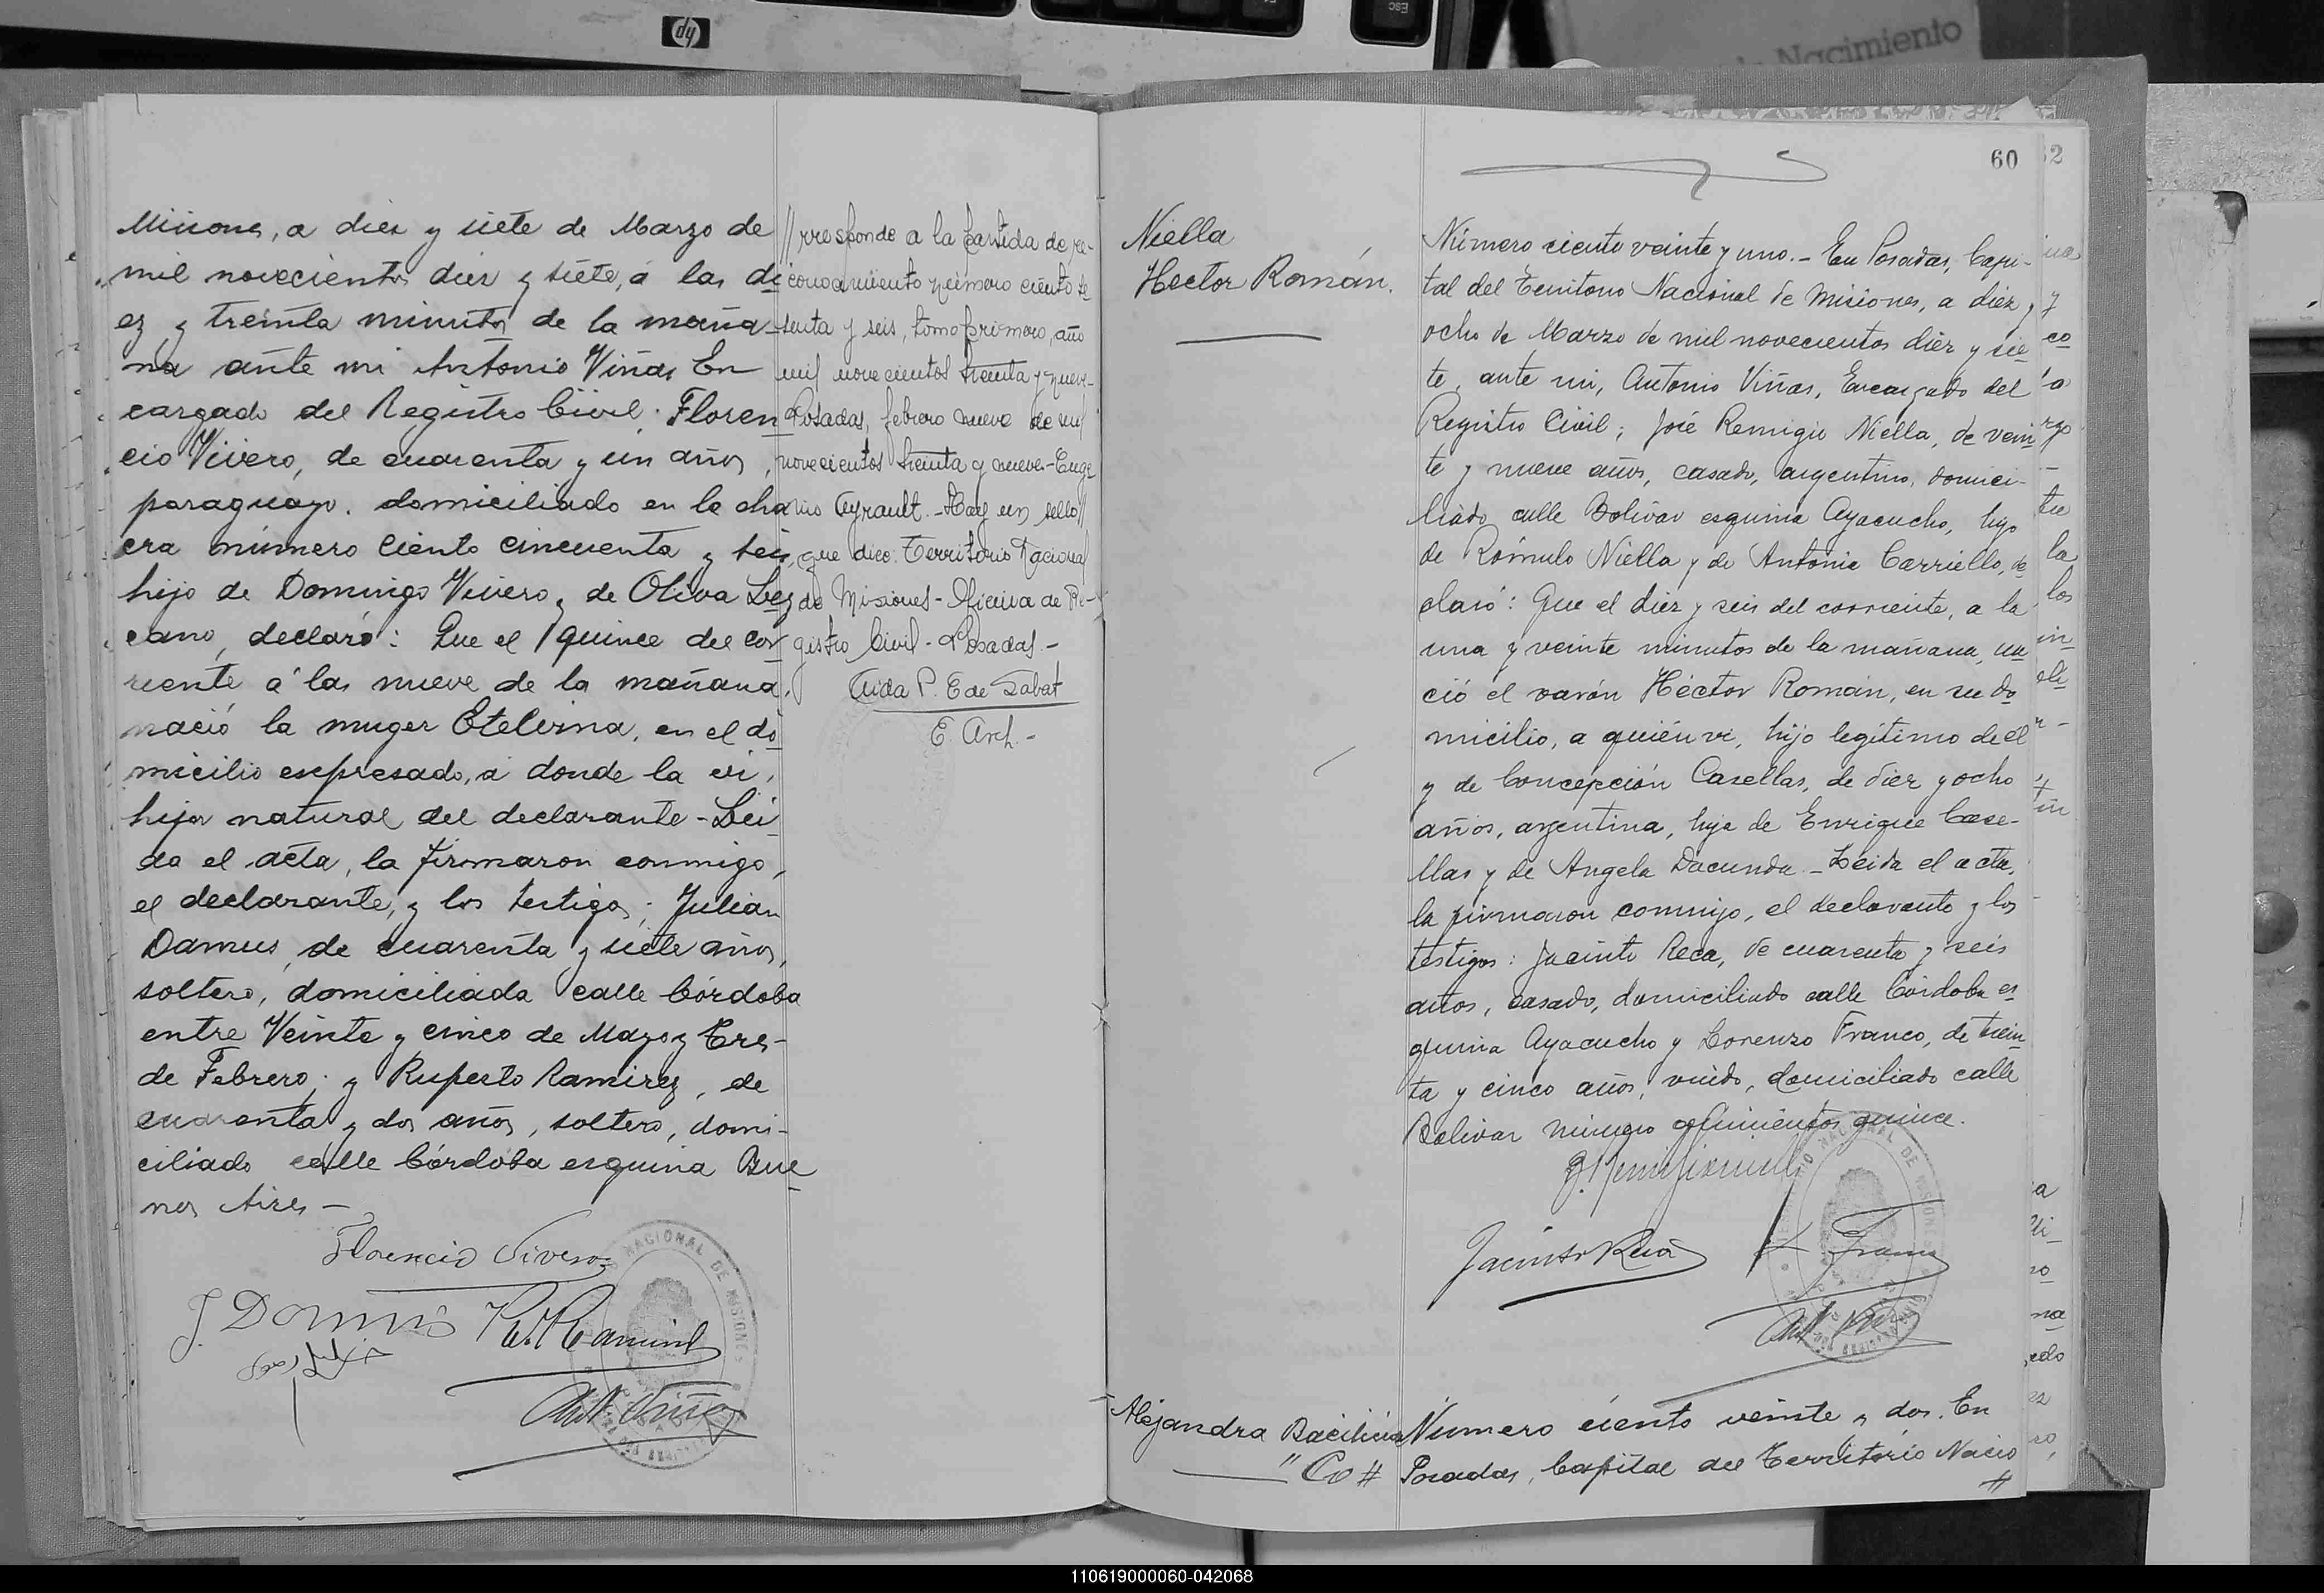 hp
Esc
Nacimiento
Misiones, a diez y siete de Marzo de
mil novecientos diez y siete, á las di
ez y treinta minutos de la maña
na ante mi Antonio Viñas En
cargado del Registro Civil. Floren
cio Vivero, de cuarenta y un años,
paraguayo. domiciliado en la cha
cra número ciento cincuenta y seis,
hijo de Domingo Vivero y de Oliva Lez
cano, declaró: Que el quince del cor
riente á las nueve de la mañana.
nació la muger Etelvina, en el do
micilio espresado, a donde la vi,
hija natural del declarante - Lei
da el acta, la firmaron conmigo,
el declarante, y los testigos; Julian
Damus, de cuarenta y siete años,
soltero, domiciliada calle Córdoba
entre Veinte y cinco de Mayo y Tres
de Febrero; y Ruperto Ramirez, de
cuarenta y dos años, soltero, domi-
ciliado calle Córdoba esquina Bue
nos Aires —
Florencio Vivero
J. Damus
Ant. Viñas
NACIONAL DE MISIONES
//rresponde a la partida de re-
conocimiento número ciento se
senta y seis, tomo primero, año
mil novecientos treinta y nueve-
Posadas, febrero nueve de mil
novecientos treinta y nueve- Euge
nio Ayrault.- Hay un sello//
que dice: Territorio Nacional
de Misiones- Oficina de Re-
gistro Civil- Posadas.-
Aida P. E de Sabat
E. Arch.-
60
62
Niella
Hector Román.
Número ciento veinte y uno.- En Posadas, Capi-
tal del Territorio Nacional de Misiones, a diez y
ocho de Marzo de mil novecientos diez y sie
te, ante mi, Antonio Viñas, Encargado del
Registro Civil; José Remigio Niella, de vein
te y nueve años, casado, argentino, domici-
liado calle Bolívar esquina Ayacucho, hijo
de Rómulo Niella y de Antonia Carriello, de
claró: Que el diez y seis del corriente, a la
una y veinte minutos de la mañana, na
ció el varón Héctor Román, en su do
micilio, a quién vi, hijo legítimo de él
y de Concepción Casellas, de diez y ocho
años, argentina, hija de Enrique Case-
llas y de Angela Dacunda.- Leida el acta,
la firmaron conmigo, el declarante y los
testigos: Jacinto Reca, de cuarenta y seis
años, casado, domiciliado calle Córdoba es
quina Ayacucho y Lorenzo Franco, de trein
ta y cinco años, viudo, domiciliado calle
Bolivar número quinientos quince.
Jacinto Reca
L Franco
Ant. Viñas
NACIONAL DE MISIONES
Alejandra Bacilicia
" Co #
Número ciento veinte y dos. En
Posadas, Capital del Territorio Nacio
#
110619000060-042068